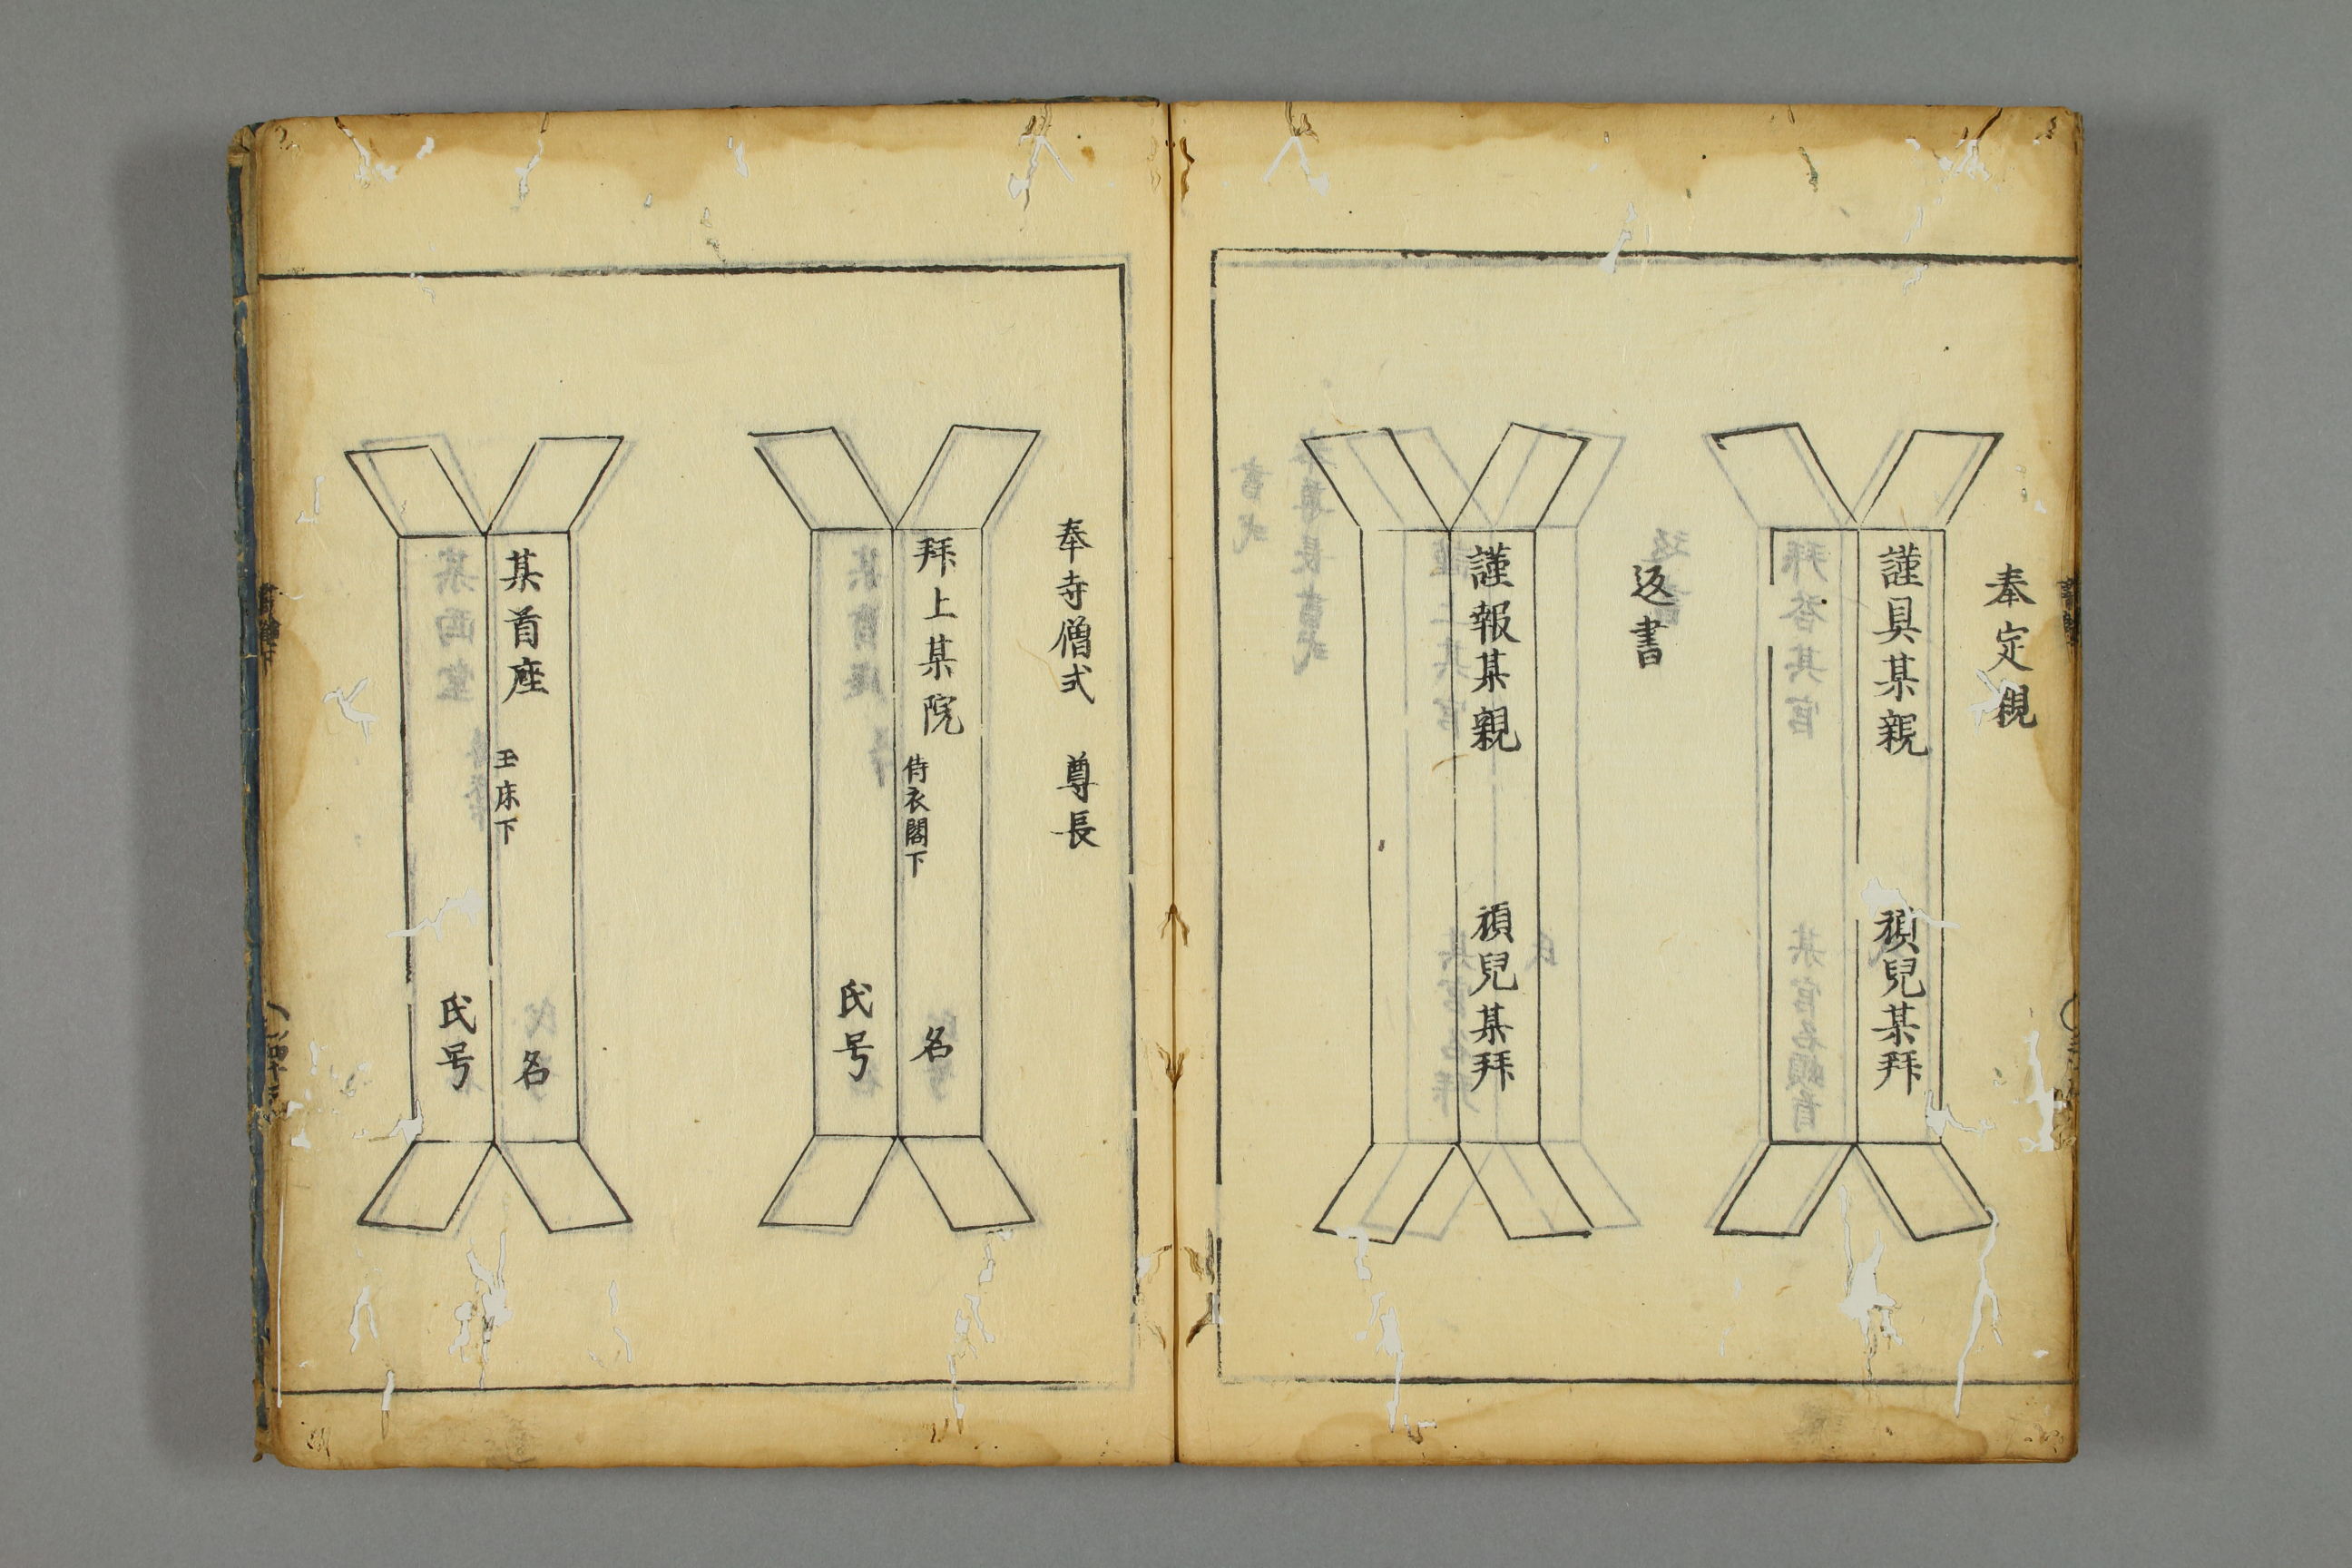 奉定親
謹具某親 禎兒某拜
返書
謹報某親 禎兒某拜
奉寺僧式 尊長
拜上某院 侍衣閣下 名
氏号
某首座 玉床下 名
氏号